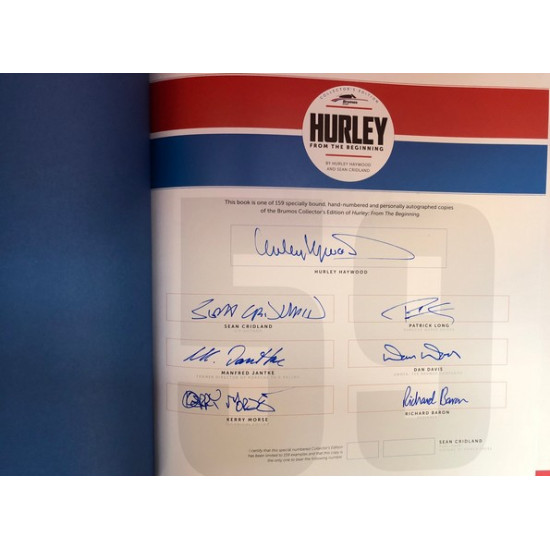 COLLECTOR'S EDITION
Brumos
HURLEY
FROM THE BEGINNING
BY HURLEY HAYWOOD
AND SEAN CRIDLAND
This book is one of 159 specially bound, hand-numbered and personally autographed copies
of the Brumos Collector's Edition of Hurley: From The Beginning
59
Hurley Haywood
HURLEY HAYWOOD
Sean Cridland
SEAN CRIDLAND
PATRICK LONG
M. Jantke
MANFRED JANTKE
DAN DAVIS
Kerry Morse
KERRY MORSE
Richard Baron
RICHARD BARON
I certify that this special numbered Collector's Edition
has been limited to 159 examples and that this copy is
the only one to bear the following number
SEAN CRIDLAND